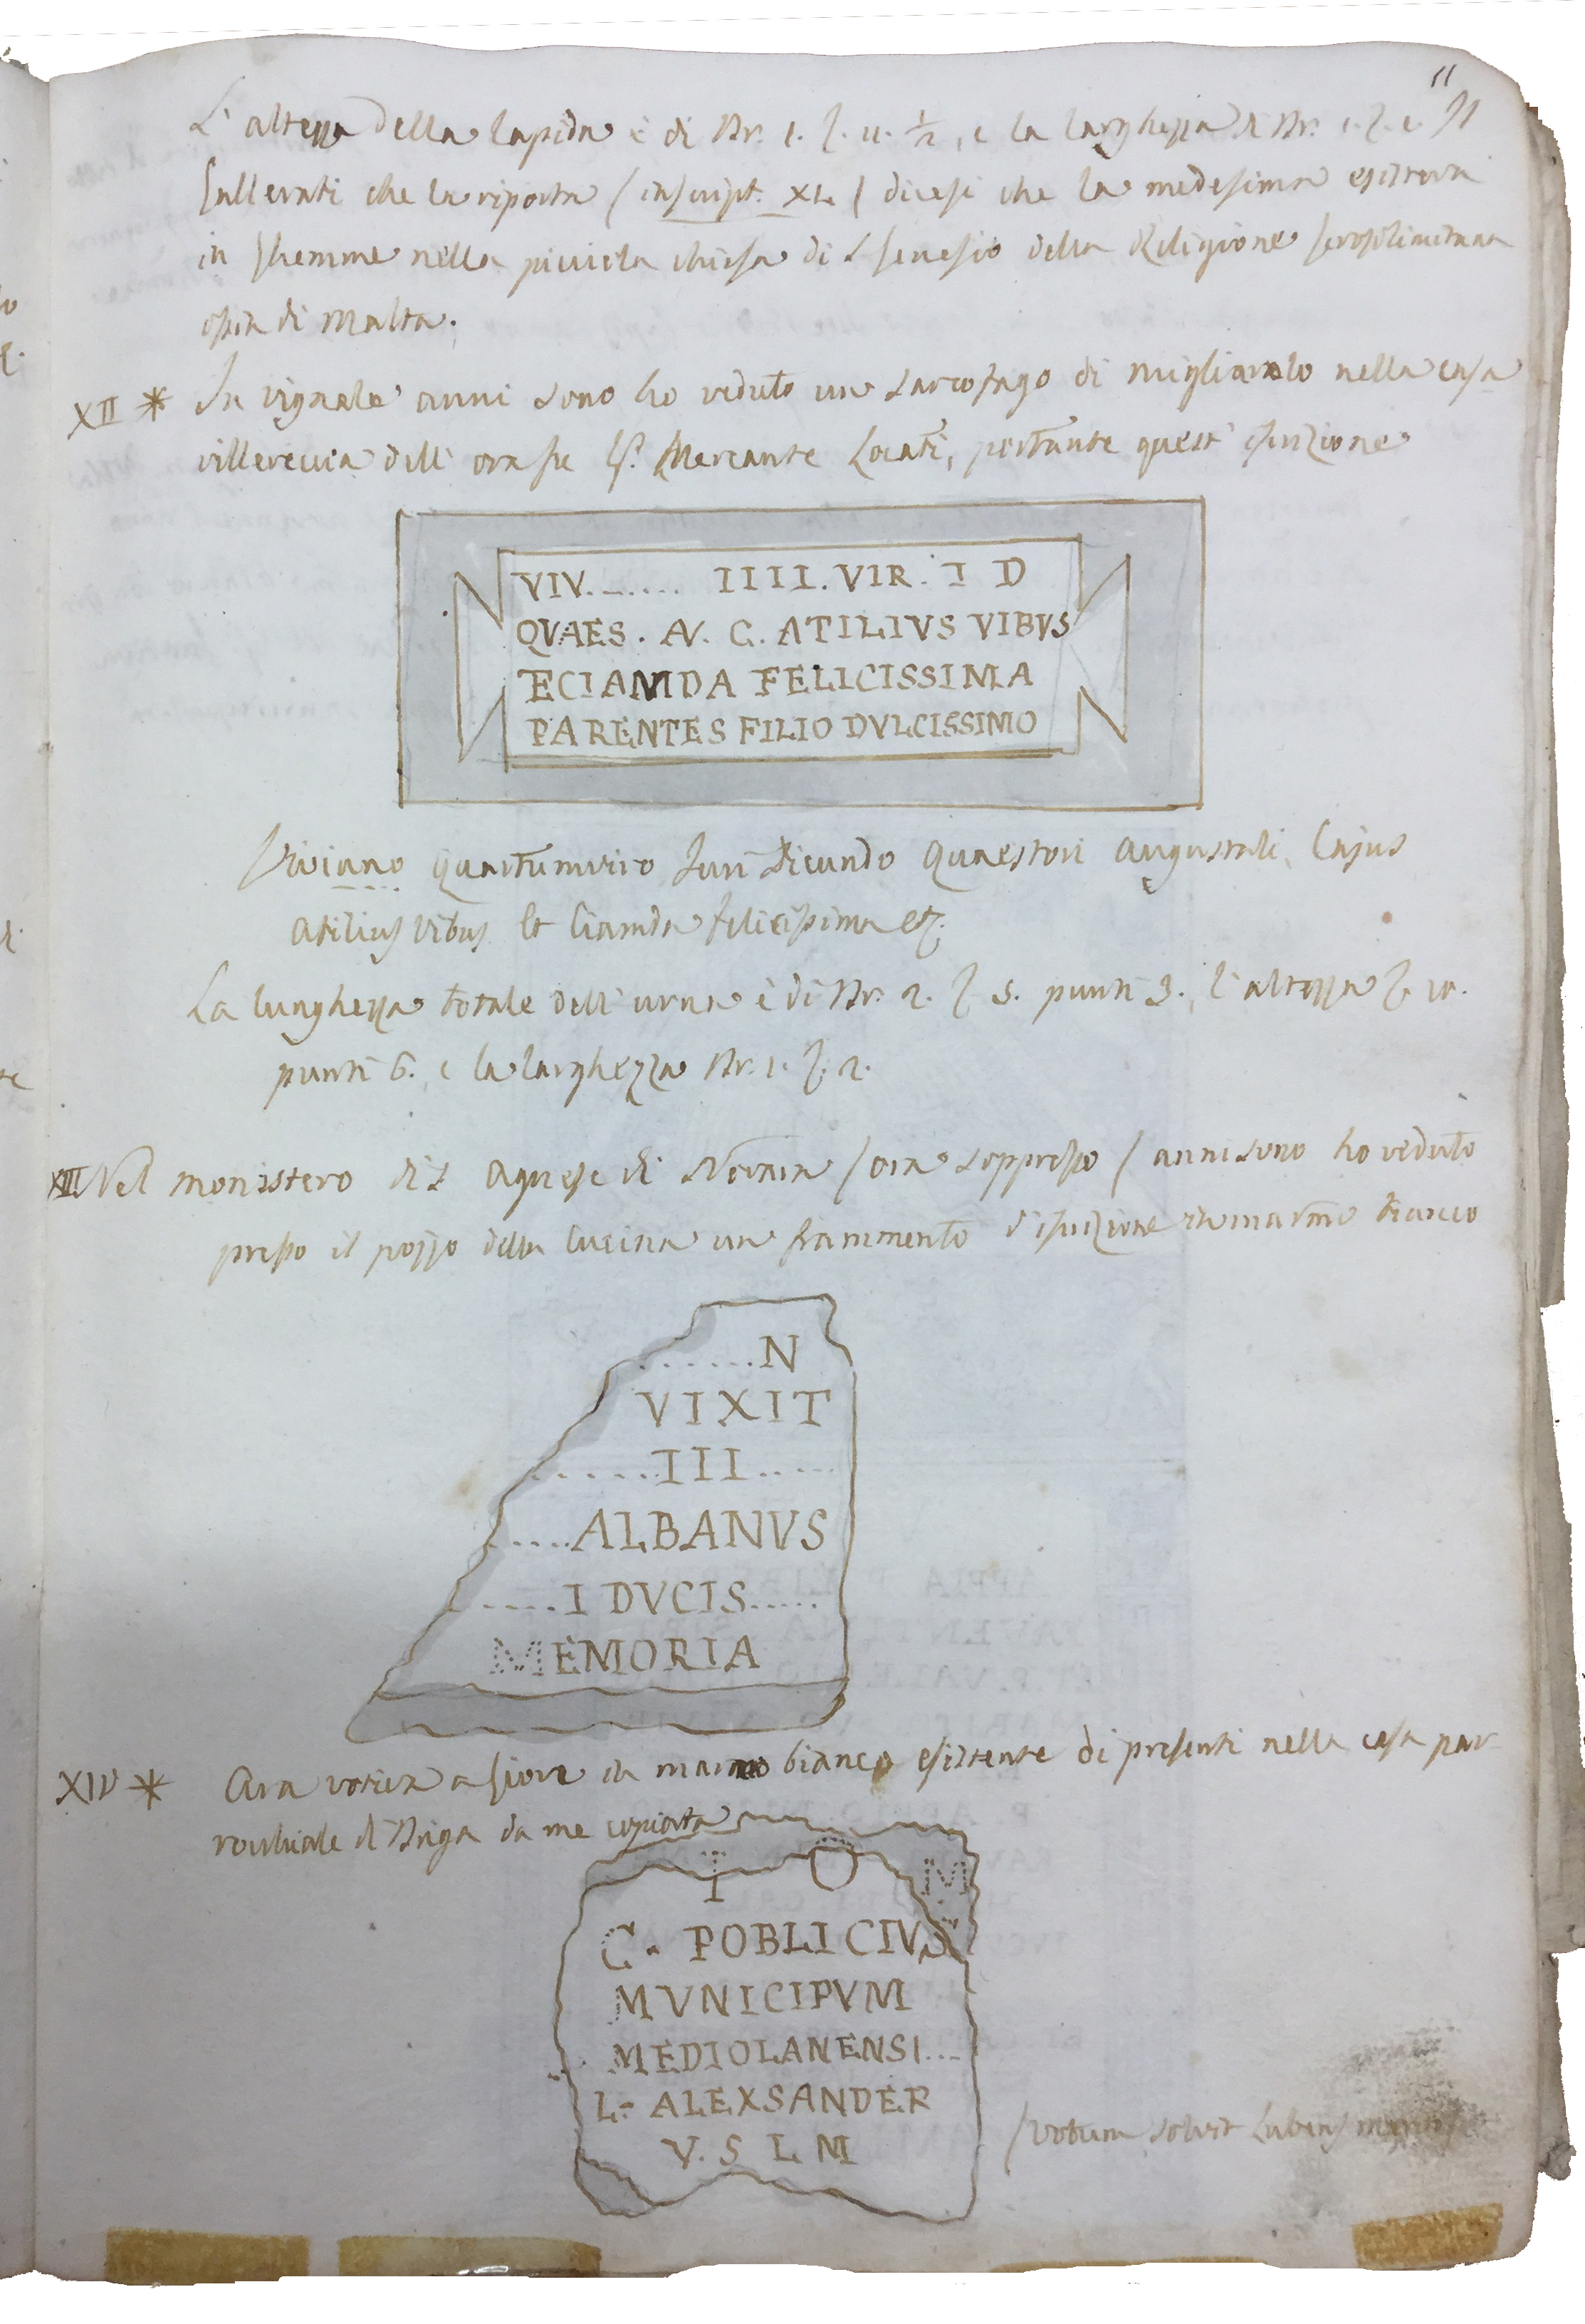 11
L'altezza della lapida è di Br. 1. 2. 11. 1/2, e la larghezza di Br. 1.
Gallerati che la riporta (inscript. XL.) dicesi che la medesima esisteva
in Ghemme nella piccola chiesa di S. Genesio della Religione Gerosolimitana
ossia di Malta.
XII * In Vignale anni sono ho veduto un sarcofago di migliarolo nella casa
villereccia dell' ora fu Sr. Mercante Locati, portante quest' iscrizione
VIV....... IIII. VIR. I D
QVAES. AV. C. ATILIVS VIBVS
ECIAMDA FELICISSIMA
PARENTES FILIO DVLCISSIMO
Viviano Quartumviro Juri Dicundo Quaestori Augustali, Cajus
Atilius Vibus Et Ciamda felicissima etc.
La lunghezza totale dell' urna è di Br. 2. 5. punti 3., l' altezza 10.
punti 6., e la larghezza Br. 1. 2.
XIII. Nel monistero di S. Agnese di Novara (ora soppresso) anni sono ho veduto
presso il pozzo della Cucina un frammento d'iscrizione in marmo bianco
.......N
VIXIT
......III.....
.....ALBANVS
.....I DVCIS.....
MEMORIA
XIV * Ara votiva di marmo bianco esistente di presenti nella casa par-
rochiale di Briga da me copiata
I O M
C. POBLICIVS
MVNICIPVM
MEDIOLANENSI...
L. ALEXSANDER
V. S L M
(Votum solvit Lubens merito)